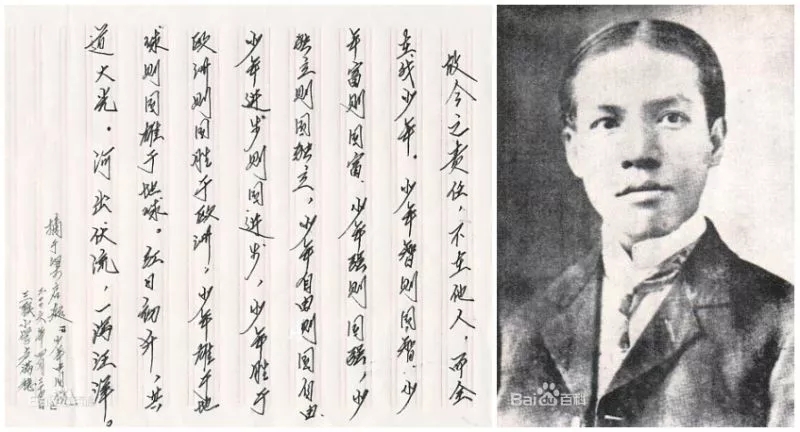 故今之责任，不在他人，而全
在我少年。少年智则国智，少
年富则国富，少年强则国强，少
独立则国独立，少年自由则国自由，
少年进步则国进步，少年胜于
欧洲则国胜于欧洲，少年雄于地
球则国雄于地球。红日初升，其
道大光。河出伏流，一泻汪洋。
摘于梁启超《少年中国说》
年四月
小学
Baidu百科
Baidu百科